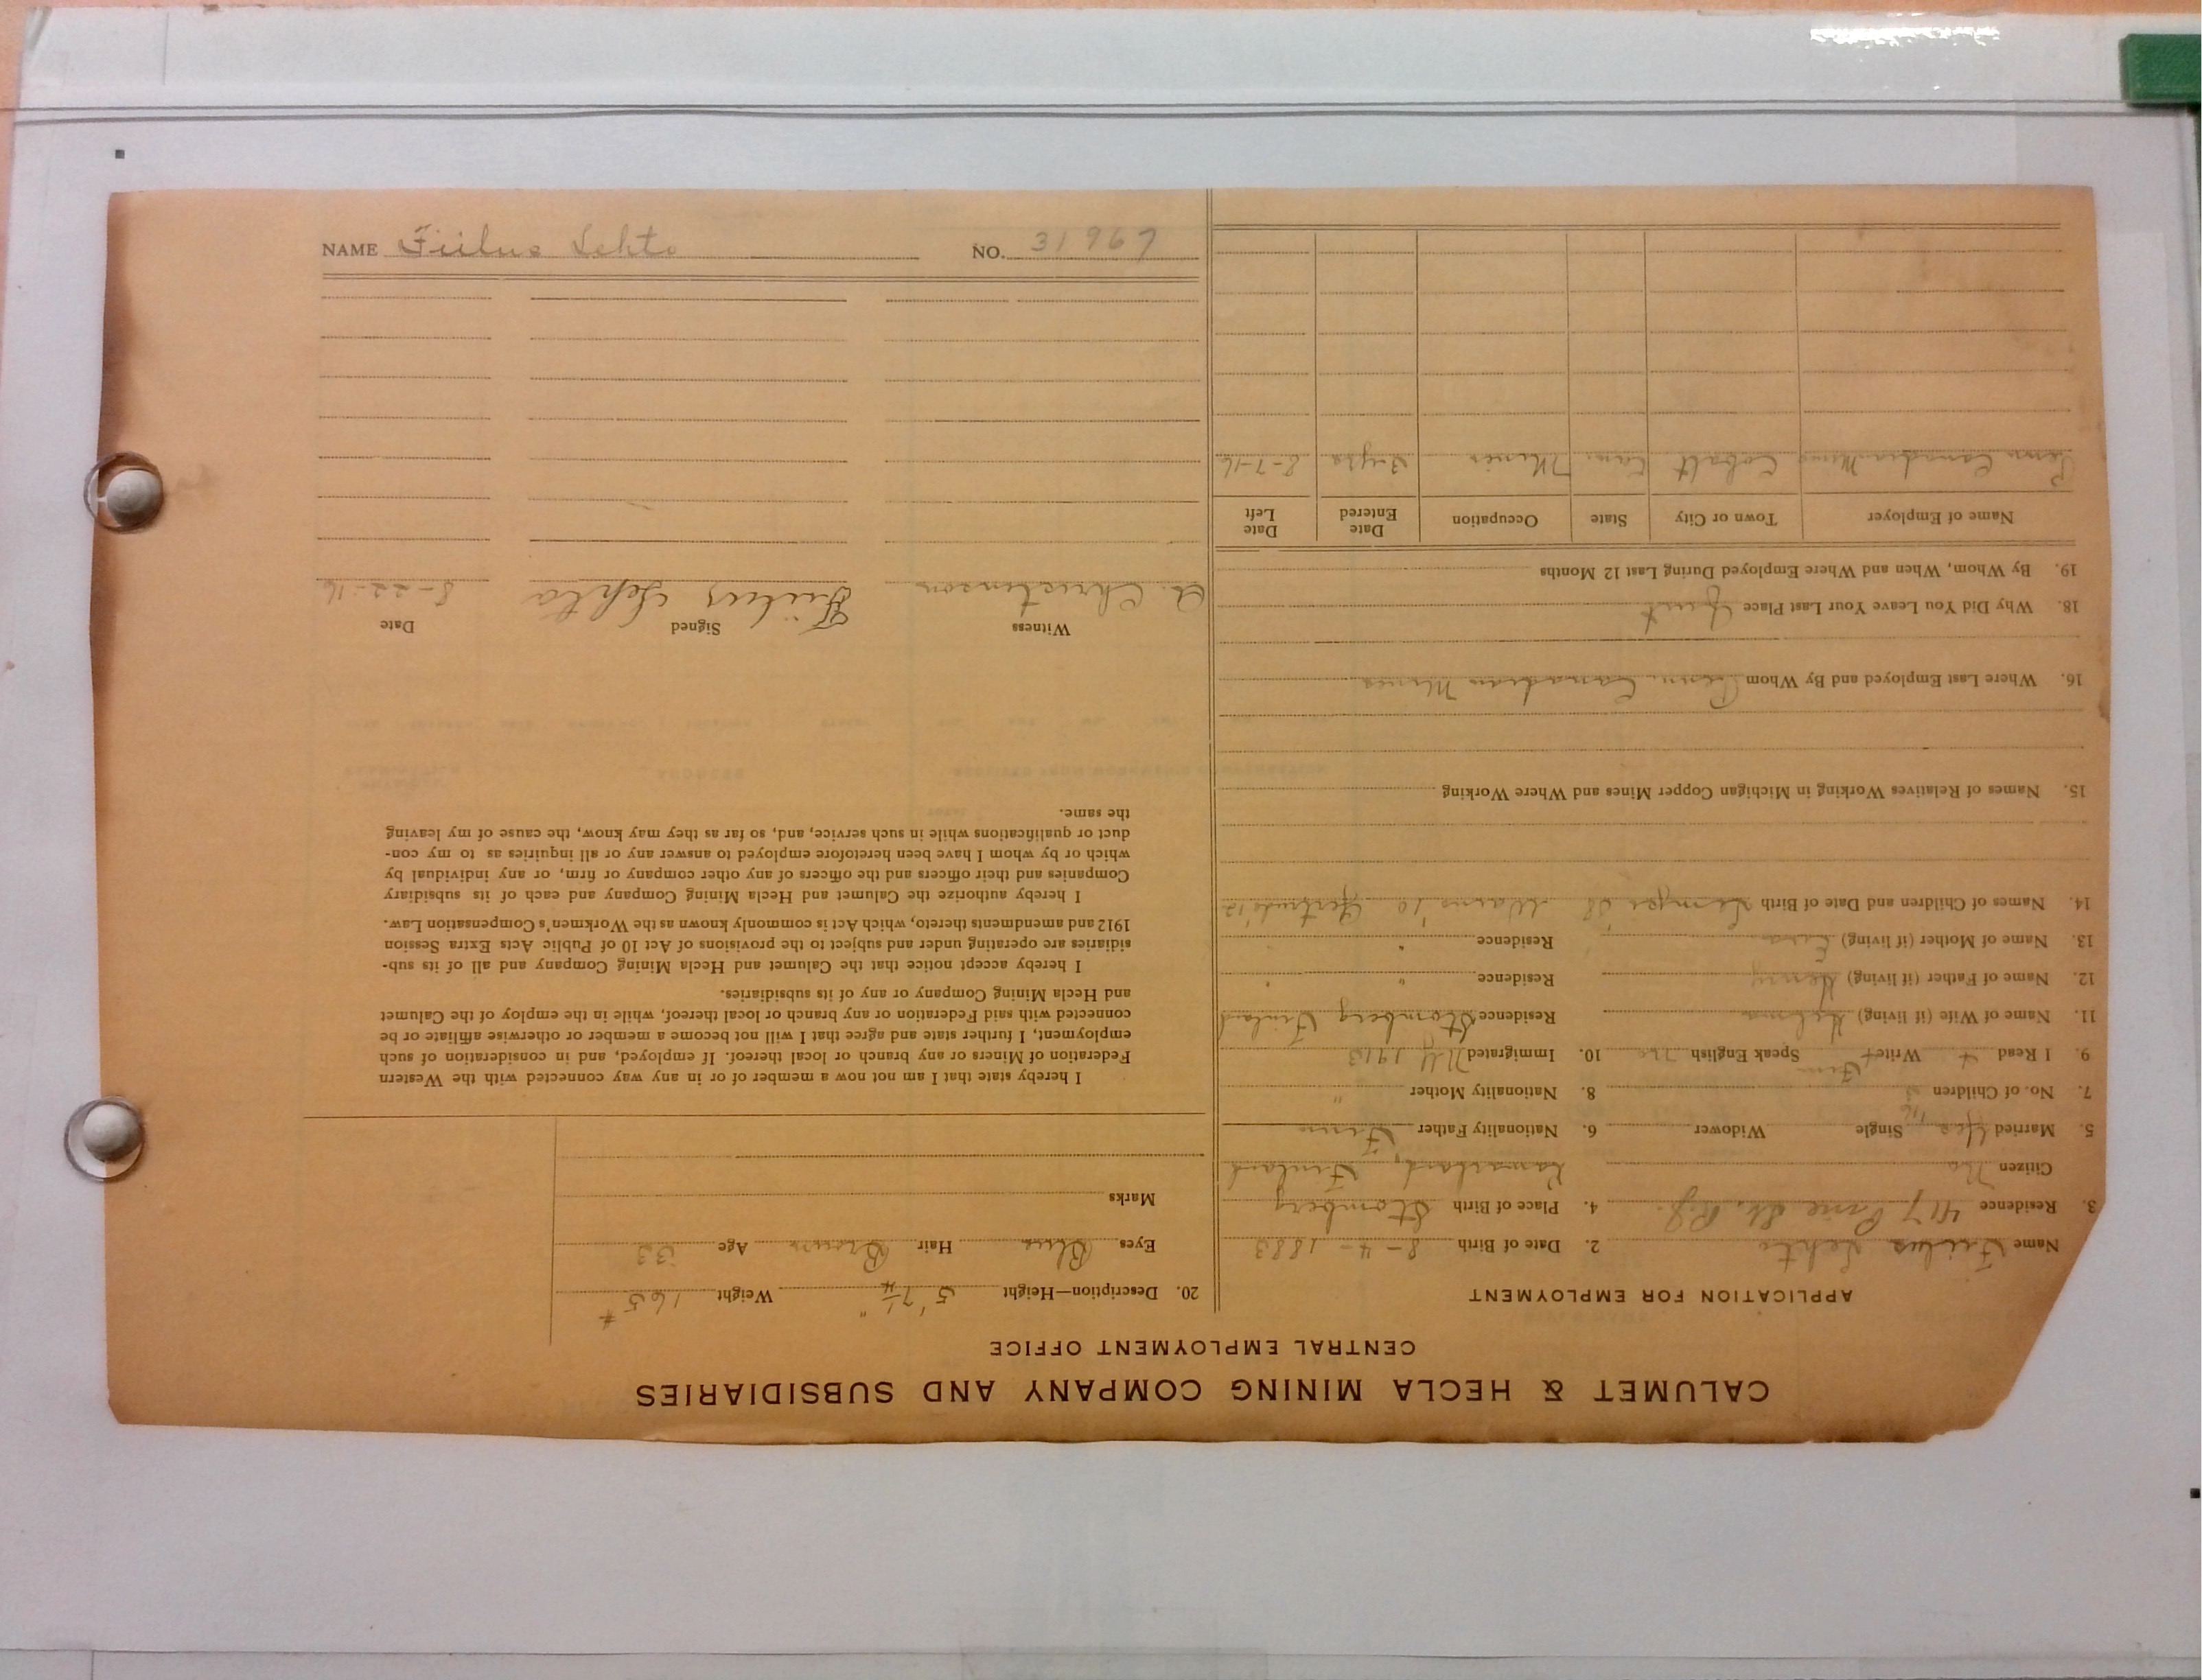 NAME Fiilus Lehto NO. 31967
CALUMET & HECLA MINING COMPANY AND SUBSIDIARIES
CENTRAL EMPLOYMENT OFFICE
APPLICATION FOR EMPLOYMENT
Name Fiilus Lehto 2. Date of Birth 8-4-1883
3. Residence 417 Pine St. 4. Place of Birth Stomberg
Citizen No Finland
5. Married Yes Single Widower 6. Nationality Father Finn
7. No. of Children 3 8. Nationality Mother "
9. I Read + Write + Finn Speak English No 10. Immigrated N.Y. 1913
11. Name of Wife (if living) Hilma Residence Stomberg Finland
12. Name of Father (if living) Henry Residence " "
13. Name of Mother (if living) Residence " "
14. Names of Children and Date of Birth '08 '10 Gertrude '12
15. Names of Relatives Working in Michigan Copper Mines and Where Working
16. Where Last Employed and By Whom Penn. Canadian Mines
18. Why Did You Leave Your Last Place Quit
19. By Whom, When and Where Employed During Last 12 Months
Name of Employer Town or City State Occupation Date Entered Date Left
Penn. Canadian Mines Cobalt Can. Miner 3 yrs 8-7-16
20. Description—Height 5' 7 1/4" Weight 165 #
Eyes Blue Hair Brown Age 33
Marks
I hereby state that I am not now a member of or in any way connected with the Western
Federation of Miners or any branch or local thereof. If employed, and in consideration of such
employment, I further state and agree that I will not become a member or otherwise affiliate or be
connected with said Federation or any branch or local thereof, while in the employ of the Calumet
and Hecla Mining Company or any of its subsidiaries.
I hereby accept notice that the Calumet and Hecla Mining Company and all of its sub-
sidiaries are operating under and subject to the provisions of Act 10 of Public Acts Extra Session
1912 and amendments thereto, which Act is commonly known as the Workmen's Compensation Law.
I hereby authorize the Calumet and Hecla Mining Company and each of its subsidiary
Companies and their officers and the officers of any other company or firm, or any individual by
which or by whom I have been heretofore employed to answer any or all inquiries as to my con-
duct or qualifications while in such service, and, so far as they may know, the cause of my leaving
the same.
Witness Signed Date
A. Christenson Fiilus Lehto 8-22-16